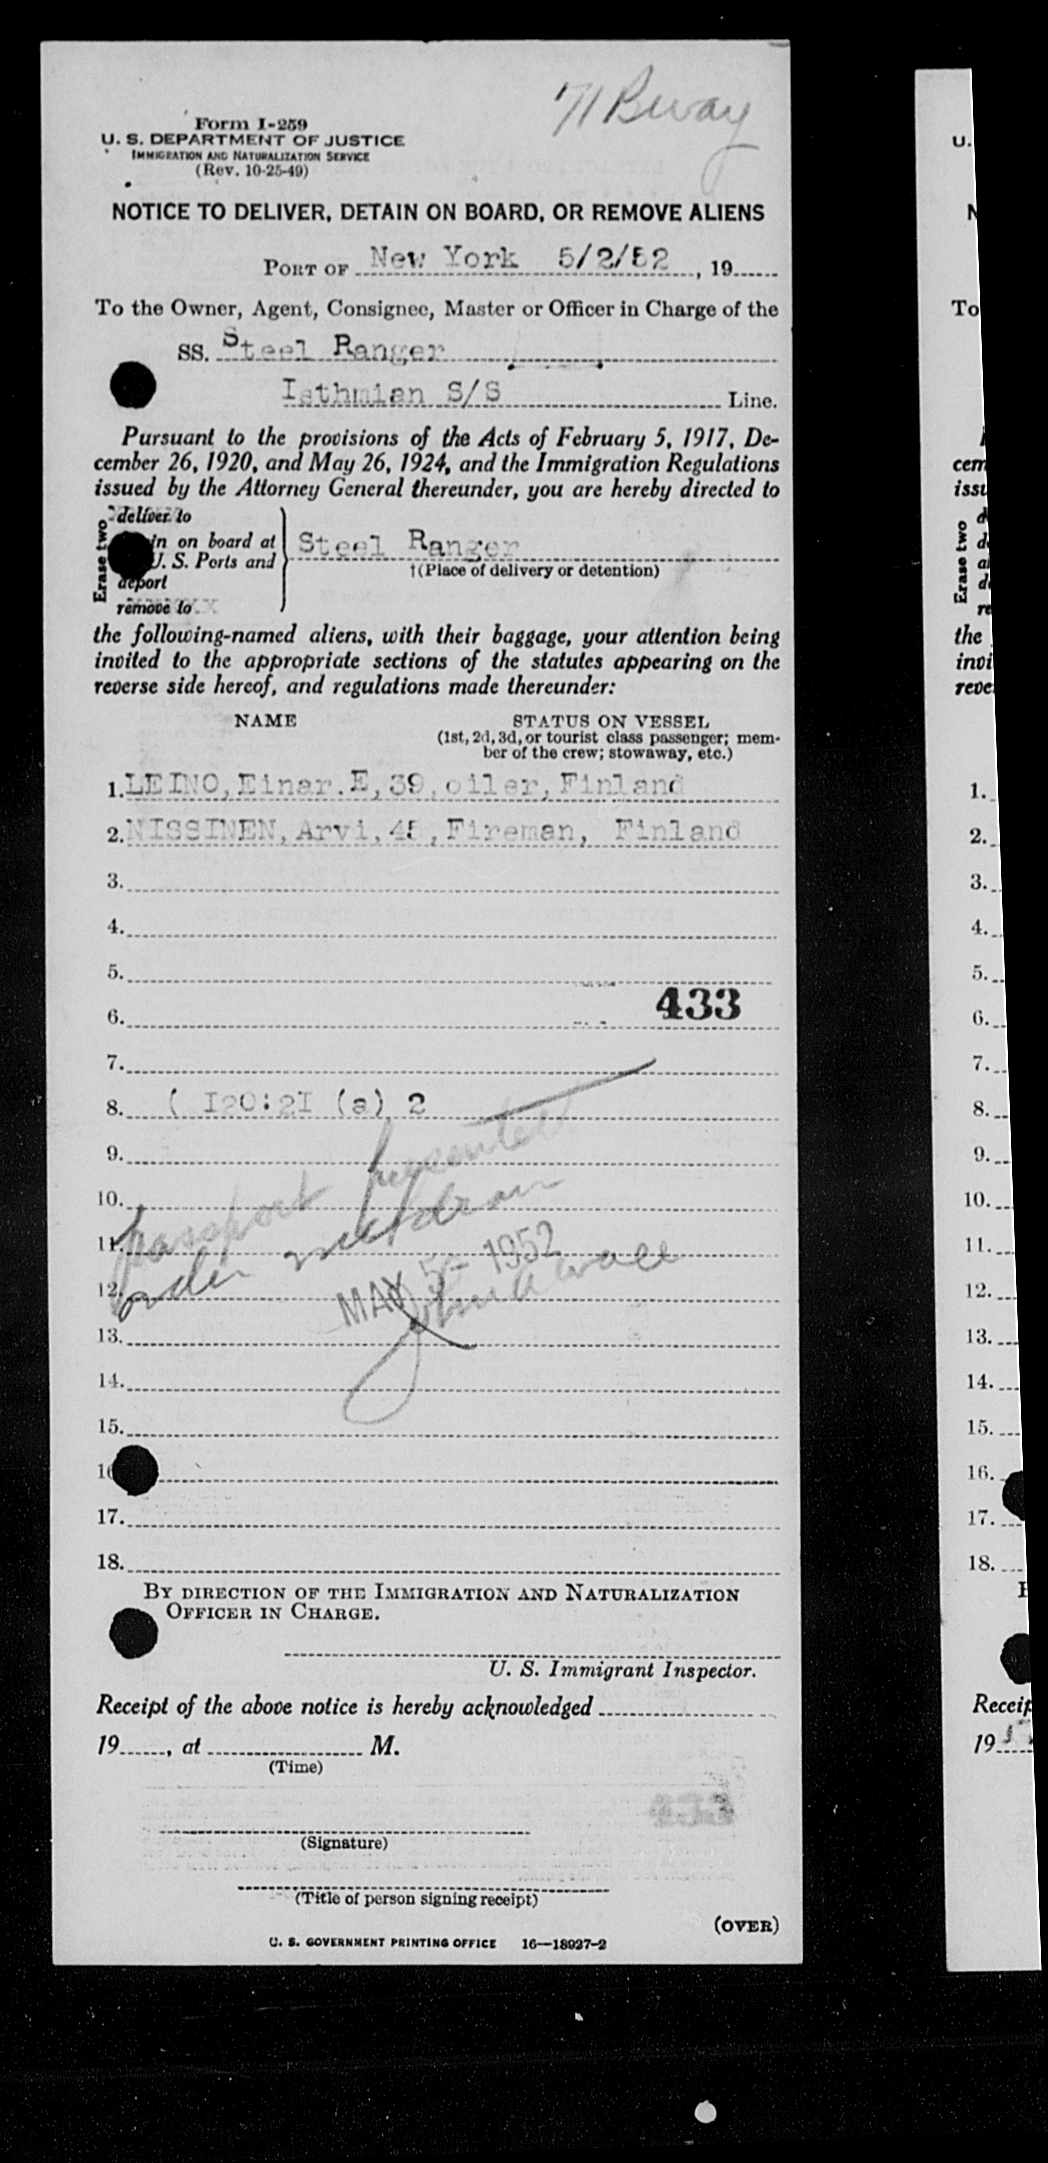 71 Bway
Form I-259
U. S. DEPARTMENT OF JUSTICE
IMMIGRATION AND NATURALIZATION SERVICE
(Rev. 10-25-49)
NOTICE TO DELIVER, DETAIN ON BOARD, OR REMOVE ALIENS
PORT OF New York 5/2/52, 19
To the Owner, Agent, Consignee, Master or Officer in Charge of the
SS. Steel Ranger
Isthmian S/S Line.
Pursuant to the provisions of the Acts of February 5, 1917, De-
cember 26, 1920, and May 26, 1924, and the Immigration Regulations
issued by the Attorney General thereunder, you are hereby directed to
Erase two
deliver to
in on board at
U. S. Ports and
deport
remove to
Steel Ranger
†(Place of delivery or detention)
the following-named aliens, with their baggage, your attention being
invited to the appropriate sections of the statutes appearing on the
reverse side hereof, and regulations made thereunder:
NAME STATUS ON VESSEL
(1st, 2d, 3d, or tourist class passenger; mem-
ber of the crew; stowaway, etc.)
1. LEINO, Einar. E, 39, oiler, Finland
2. NISSINEN, Arvi, 45, Fireman, Finland
3.
4.
5.
433
6.
7.
8. ( I20:2I (a) 2
9.
10.
passport presented
11.
order withdrawn
12.
MAY 5- 1952
John Wall
13.
14.
15.
16
17.
18.
BY DIRECTION OF THE IMMIGRATION AND NATURALIZATION
OFFICER IN CHARGE.
U. S. Immigrant Inspector.
Receipt of the above notice is hereby acknowledged
19, at M.
(Time)
433
(Signature)
(Title of person signing receipt)
(OVER)
U. S. GOVERNMENT PRINTING OFFICE 16—18927-2
U.
N
To
cem
issu
Erase two
d
d
a
d
re
the
invi
reve
1.
2.
3.
4.
5.
6.
7.
8.
9.
10.
11.
12.
13.
14.
15.
16.
17.
18.
Receip
19 5